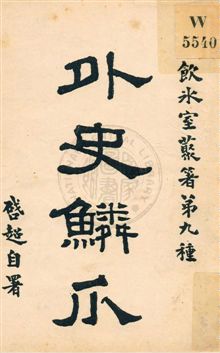 W
5540
飲冰室藂箸第九種
外史鱗爪
啓超自署